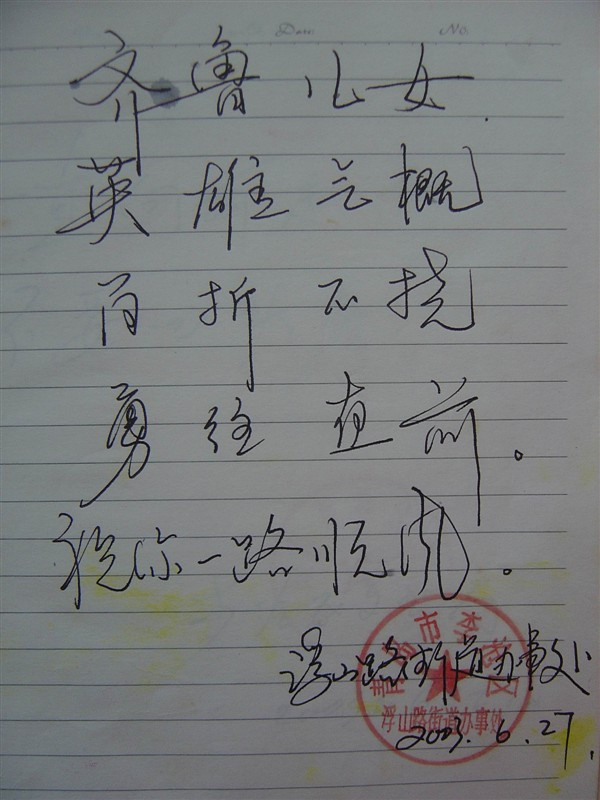 Date No.
齐鲁儿女
英雄气概
百折不挠
勇往直前。
祝你一路顺风。
浮山路街道办事处
2003.6.27.
青岛市李沧区
浮山路街道办事处